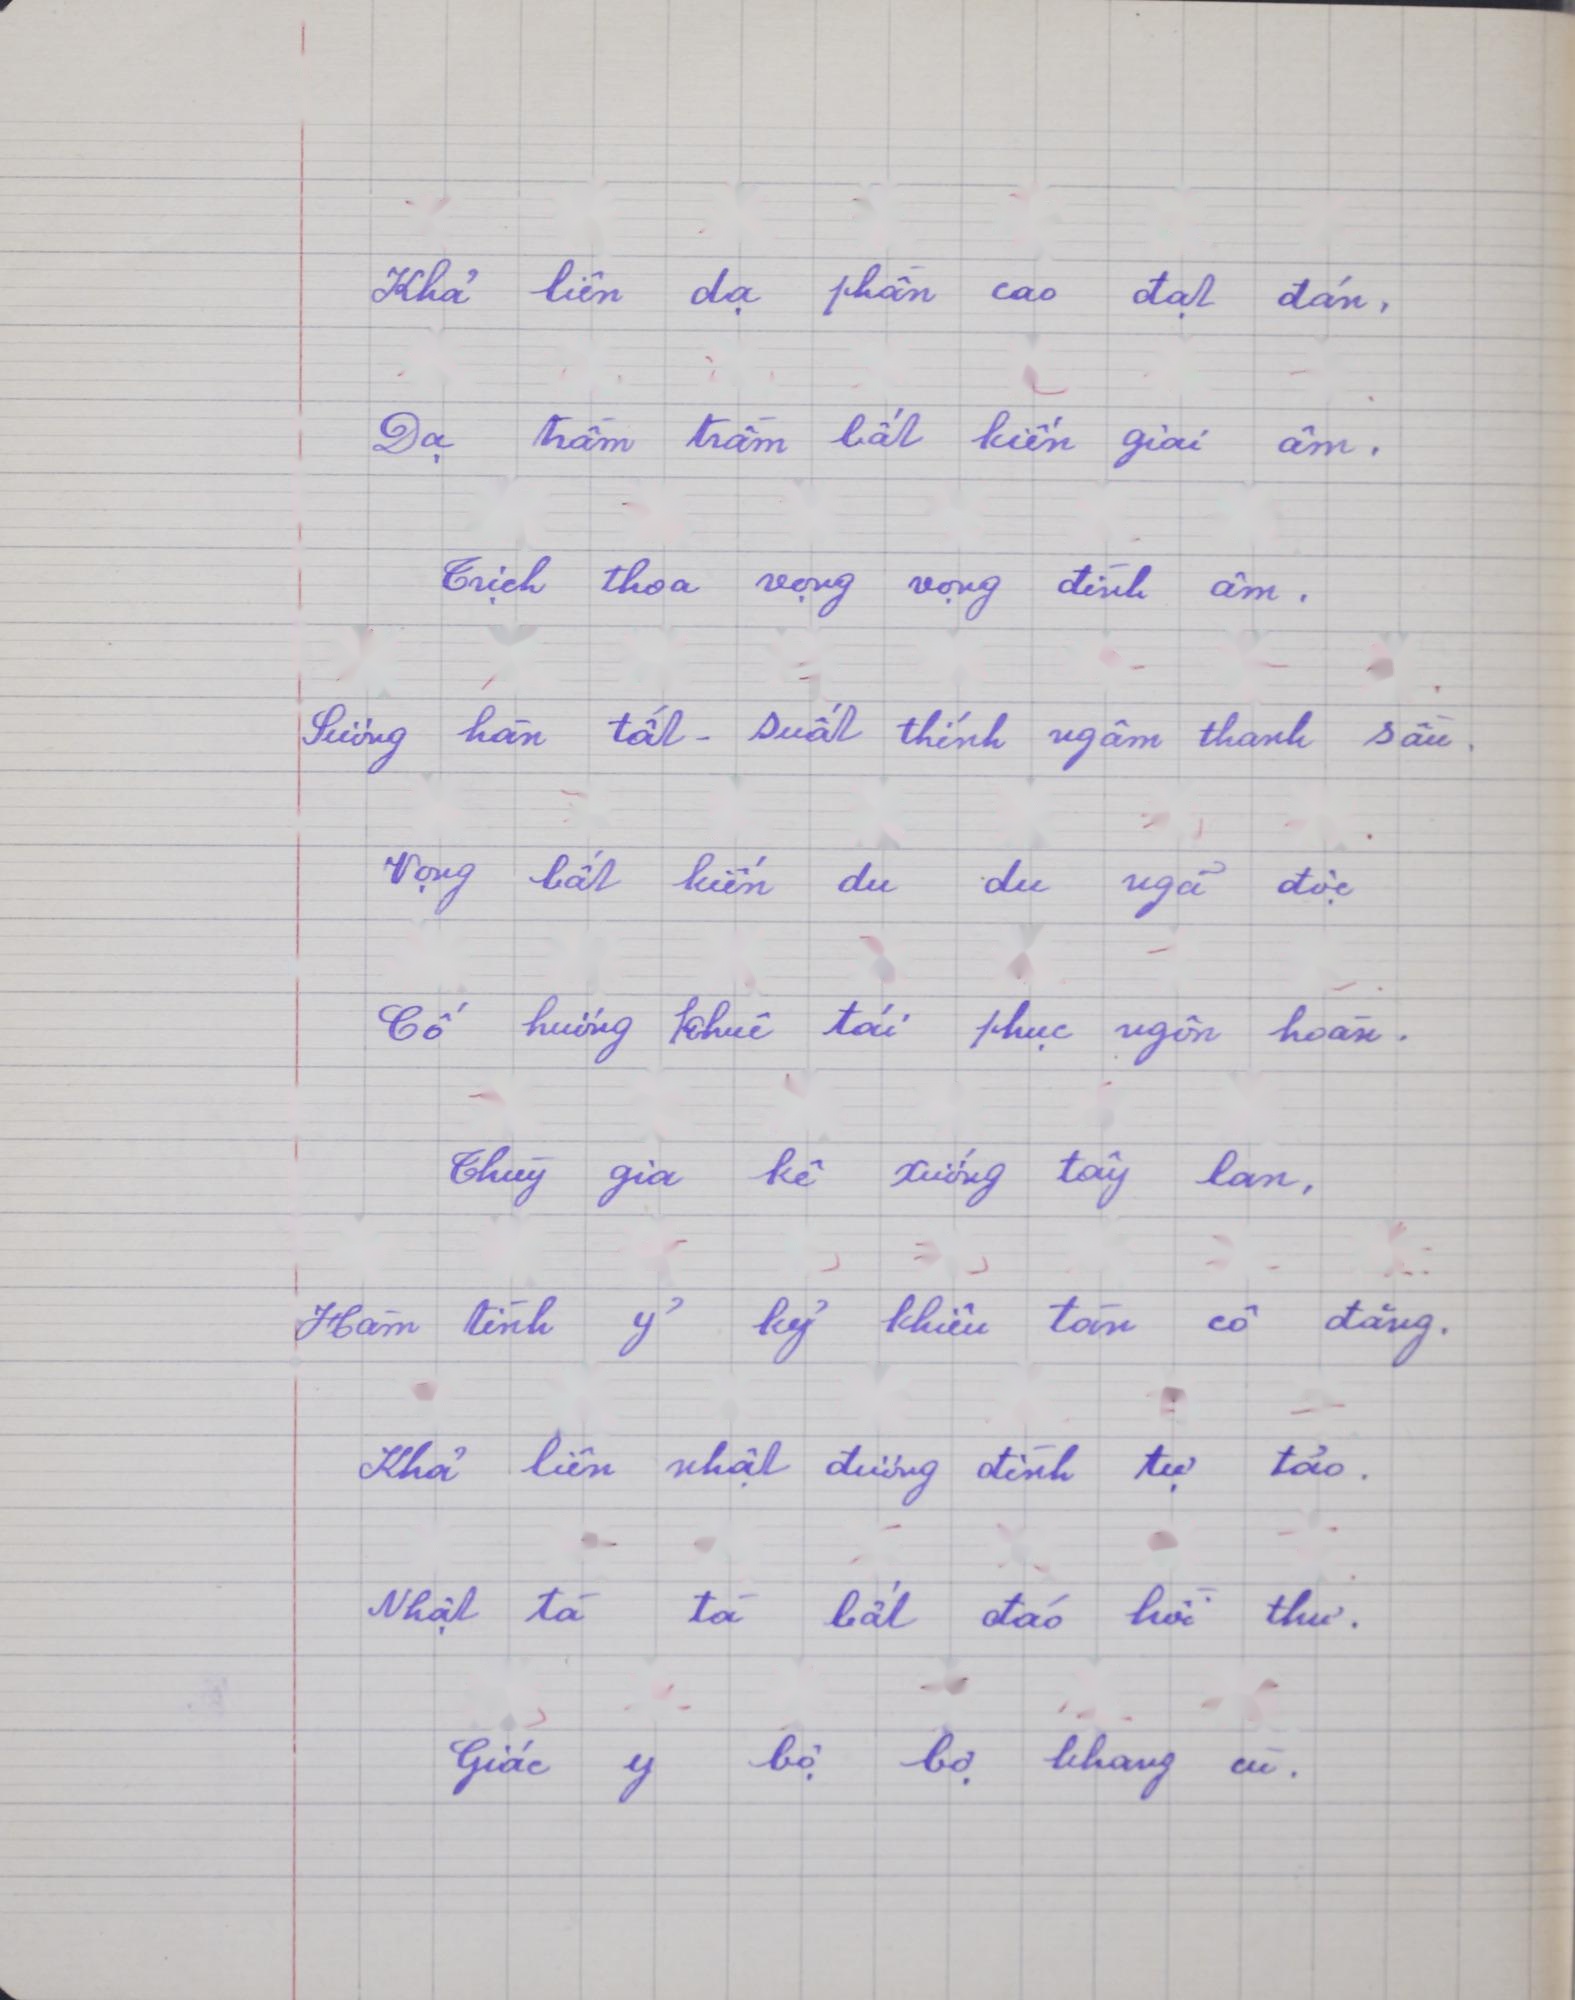 Khả liên dạ phần cao đạt đán,
Dạ trầm trầm bất kiến giai âm.
Trịch thoa vọng vọng đình âm.
Sương hàn tất - suất thính ngâm thanh sầu.
Vọng bất kiến du du ngã độc
Cố hương khuê tái phục ngôn hoàn.
Thuỳ gia kê xướng tây lan,
Hàm tình ỷ kỷ khiêu tàn cô đăng.
Khả liên nhật đương đình tự tảo.
Nhật tà tà bất đáo hồi thư.
Giác y bộ bộ khang cù.